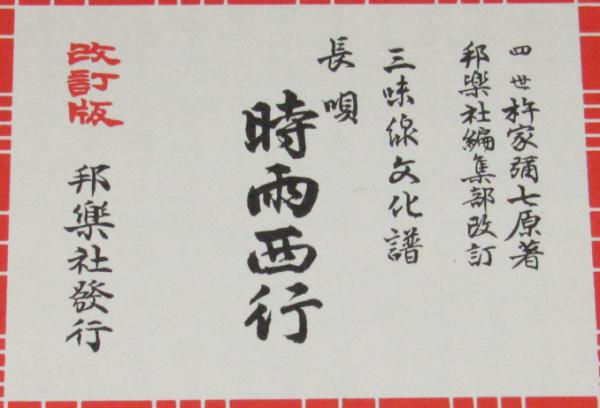 四世杵家彌七原著
邦樂社編集部改訂
三味線文化譜
長唄
時雨西行
改訂版
邦樂社發行